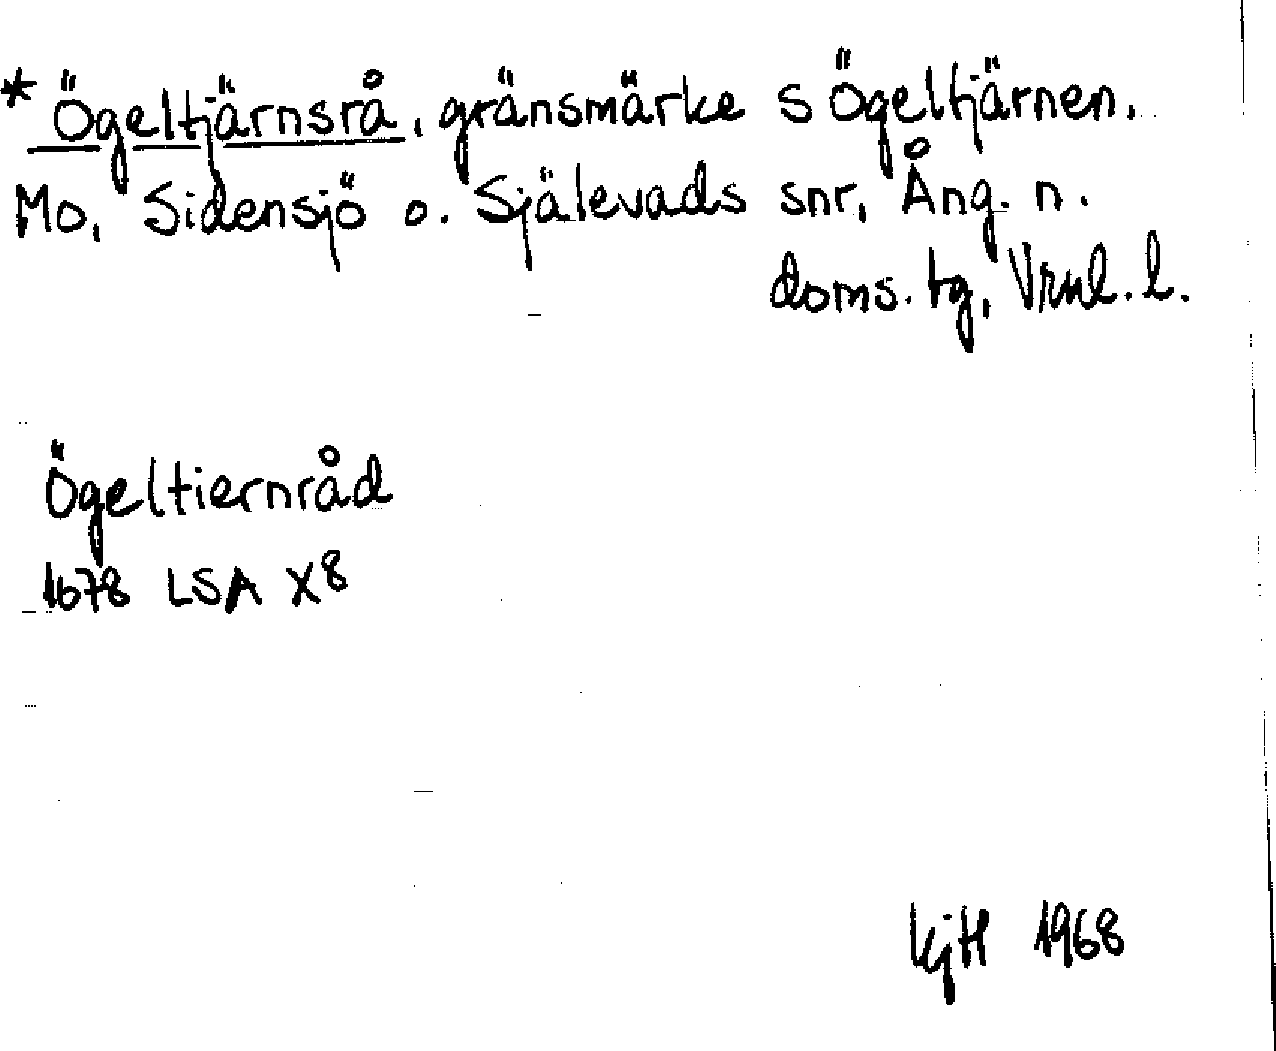 * Ögeltjärnsrå, gränsmärke s Ögeltjärnen.
Mo, Sidensjö o. Själevads snr, Ång. n.
doms. tg, Vrnl. l.
Ögeltiernråd
1678 LSA X8
KjH 1968